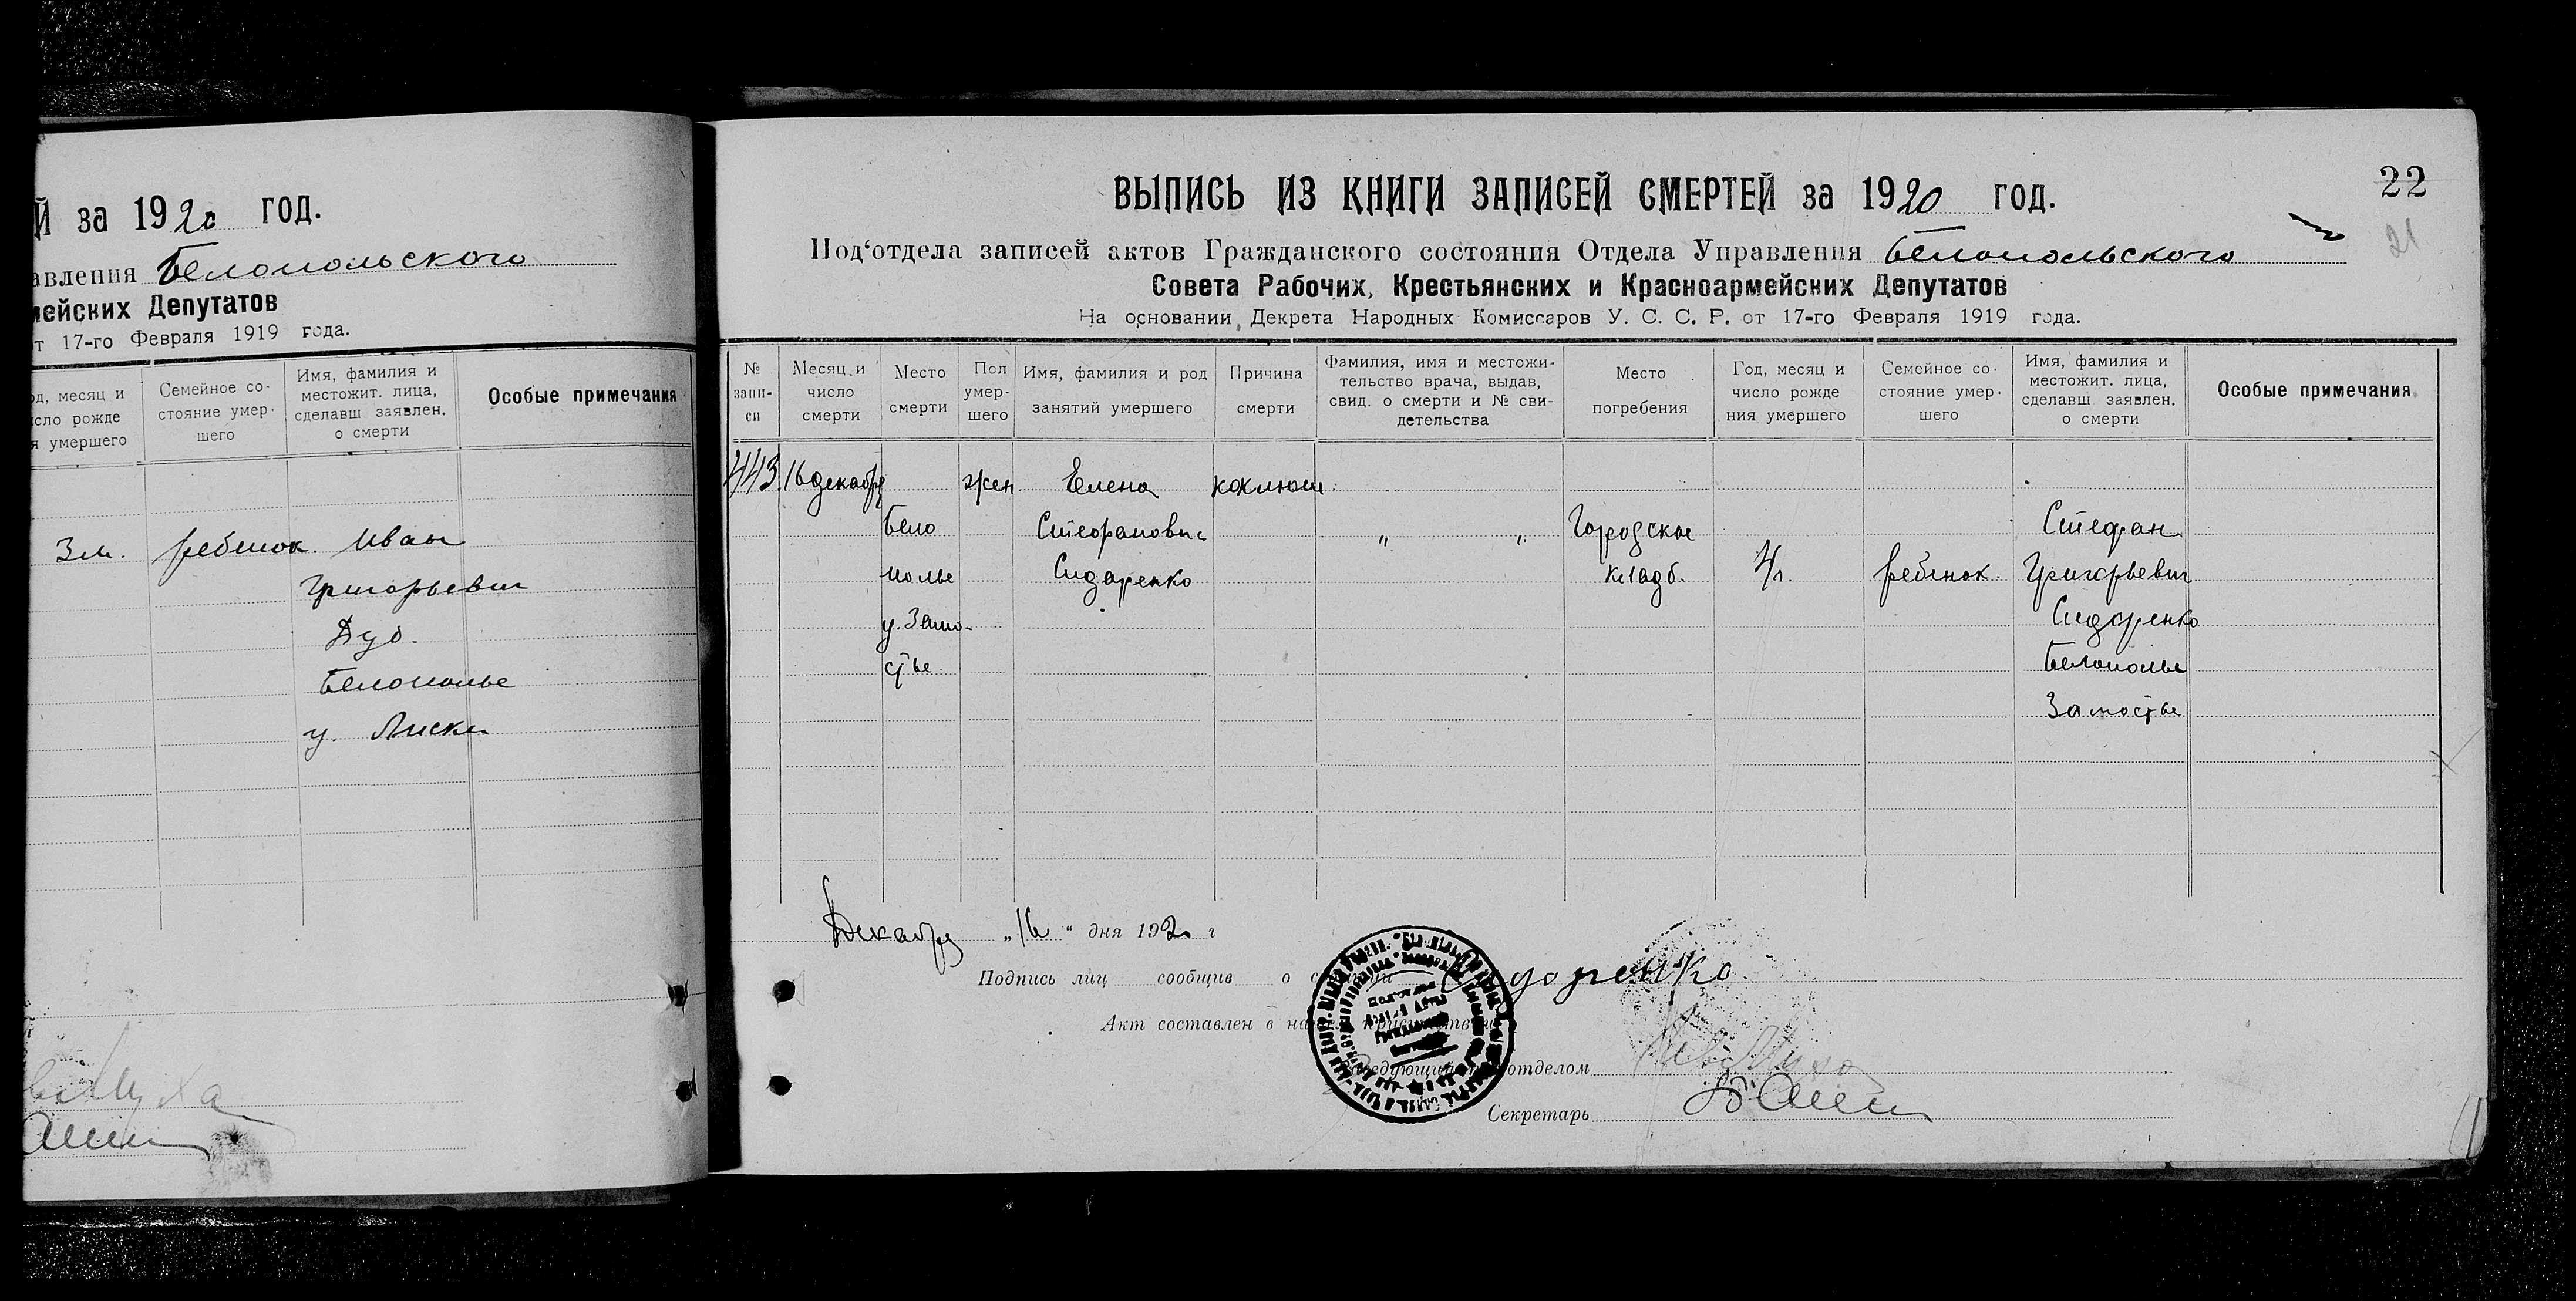 Й за 1920 ГОД.
авления Белопольского
мейских Депутатов
от 17-го Февраля 1919 года.
од, месяц и
исло рожде
я умершего
Семейное со-
стояние умер-
шего
Имя, фамилия и
местожит. лица,
сделавш заявлен.
о смерти
Особые примечания
3 м.
ребенок
Иван
Григорьевич
Дуб.
Белополье
у. Лиски
22
21
ВЫПИСЬ ИЗ КНИГИ ЗАПИСЕЙ СМЕРТЕЙ за 1920 ГОД.
Под‘отдела записей актов Гражданского состояния Отдела Управления Белопольского
Совета Рабочих, Крестьянских и Красноармейских Депутатов
На основании Декрета Народных Комиссаров У. С. С. Р. от 17-го Февраля 1919 года.
№
запи-
си
Месяц и
число
смерти
Место
смерти
Пол
умер-
шего
Имя, фамилия и род
занятий умершего
Причина
смерти
Фамилия, имя и местожи-
тельство врача, выдав,
свид. о смерти и № сви-
детельства
Место
погребения
Год, месяц и
число рожде
ния умершего
Семейное со-
стояние умер-
шего
Имя, фамилия и
местожит. лица,
сделавш заявлен.
о смерти
Особые примечания
443
16 декабря
Бело
полье
у. Замо-
стье
жен
Елена
Стефановна
Сидоренко
коклюш
" "
Городское
кладб.
ребенок
Стефан
Григорьевич
Сидоренко
Белополье
Замостье
Декабря „16“ дня 1920 г
Подпись лиц сообщив о Сидоренко
Акт составлен в
отделом
Секретарь